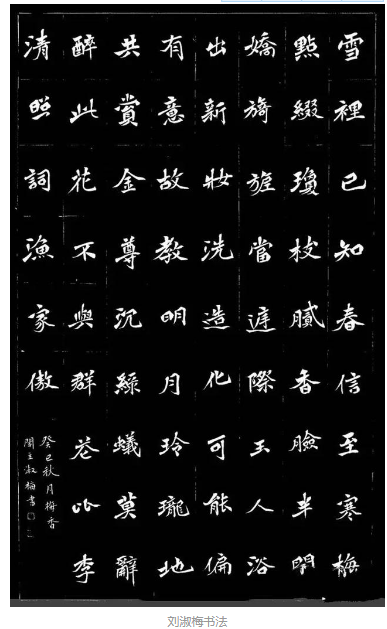 雪裡已知春信至寒梅
點綴瓊枝膩香臉半開
嬌旖旎當庭際玉人浴
出新妝洗造化可能偏
有意故教明月玲瓏地
共賞金尊沉綠蟻莫辭
醉此花不與群花比李
清照詞漁家傲
癸巳秋月梅香
閣主淑梅書
刘淑梅书法